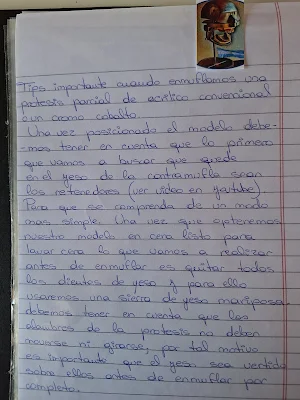 Tips importante cuando enmuflamos una
protesis parcial de acrilico convencional
o un cromo cobalto.
Una vez posicionado el modelo debe-
-mos tener en cuenta que lo primero
que vamos a buscar que quede
en el yeso de la contramufla sean
los retenedores (ver video en youtube).
Para que se comprenda de un modo
mas simple. Una vez que obtenemos
nuestro modelo en cera listo para
lavar cera lo que vamos a realizar
antes de enmuflar es quitar todos
los dientes de yeso y para ello
usaremos una sierra de yeso mariposa
debemos tener en cuenta que los
alambres de la protesis no deben
moverse ni girarse, por tal motivo
es importante que el yeso sea vertido
sobre ellos antes de enmuflar por
completo.